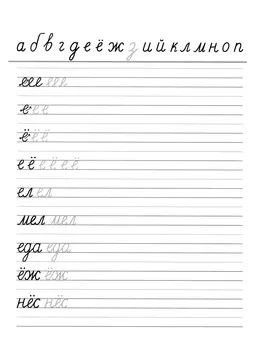 а б в г д е ё ж з и й к л м н о п
еее еее
е е е
ё ё ё
е ё е ё е ё
ел ел
мел мел
еда еда
ёж ёж
нёс нёс